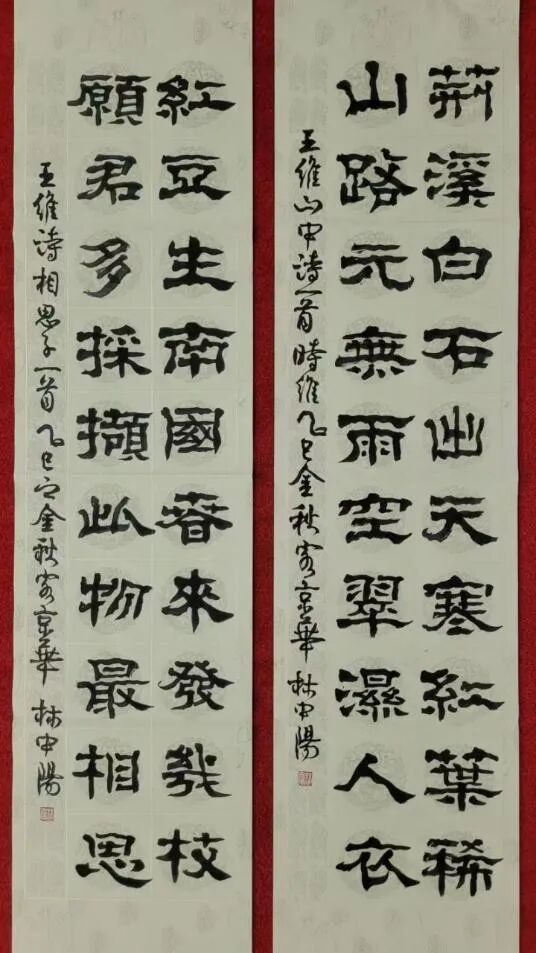 荊溪白石出天寒紅葉稀
山路元無雨空翠濕人衣
王維山中詩一首時維乙巳金秋客京華林中陽
紅豆生南國春來發幾枝
願君多採擷此物最相思
王維詩相思子一首乙巳之金秋客京華林中陽